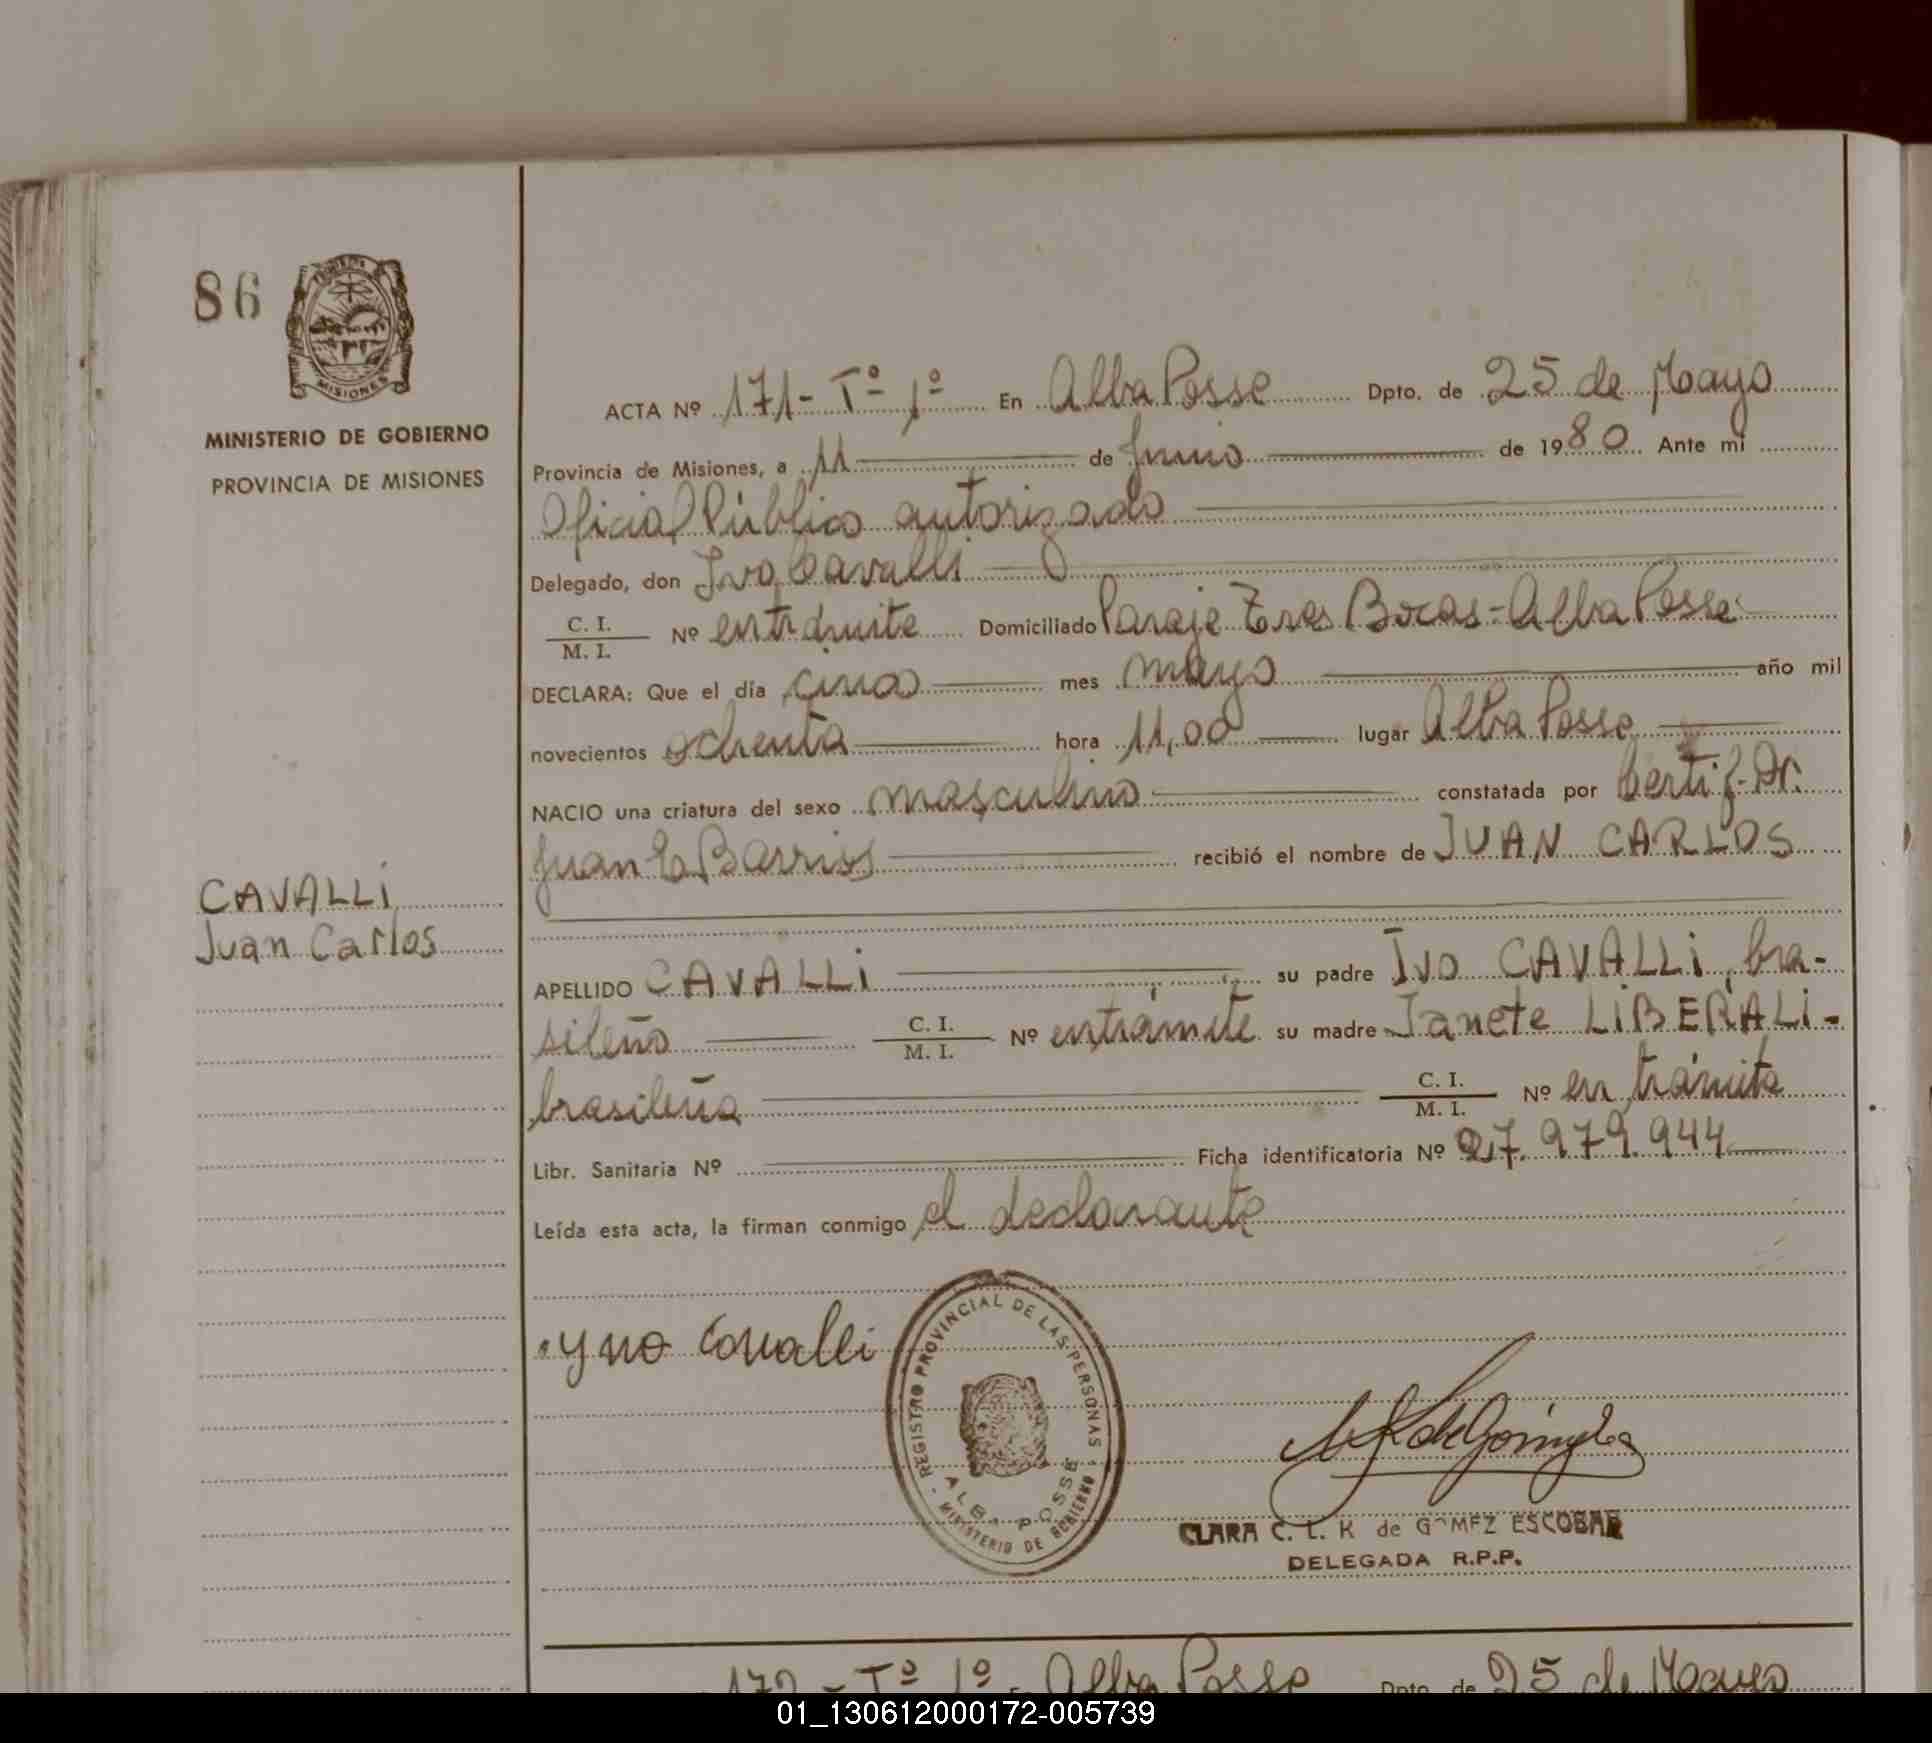 86
MISIONES
MINISTERIO DE GOBIERNO
PROVINCIA DE MISIONES
CAVALLI
Juan Carlos
ACTA Nº 171- Tº 1º En Alba Posse Dpto. de 25 de Mayo
Provincia de Misiones, a 11 de Junio de 1980. Ante mi
Oficial Público autorizado
Delegado, don Ivo Cavalli
C. I.
M. I. Nº entrámite Domiciliado Paraje Tres Bocas-Alba Posse
DECLARA: Que el día cinco mes mayo año mil
novecientos ochenta hora 11,00 lugar Alba Posse
NACIO una criatura del sexo masculino constatada por Certif. Dr.
Juan C Barrios recibió el nombre de JUAN CARLOS
APELLIDO CAVALLI su padre Ivo CAVALLI, bra-
sileño C. I. M. I. Nº entrámite su madre Janete LIBERALI-
brasileña C. I. M. I. Nº en trámite
Libr. Sanitaria Nº Ficha identificatoria Nº 27.979.944
Leída esta acta, la firman conmigo el declarante
yvo Cavalli
REGISTRO PROVINCIAL DE LAS PERSONAS
ALBA POSSE
MINISTERIO DE GOBIERNO
CLARA C. L. K de GOMEZ ESCOBAR
DELEGADA R.P.P.
172 - Tº 1º En Alba Posse Dpto. de 25 de Mayo
01_130612000172-005739